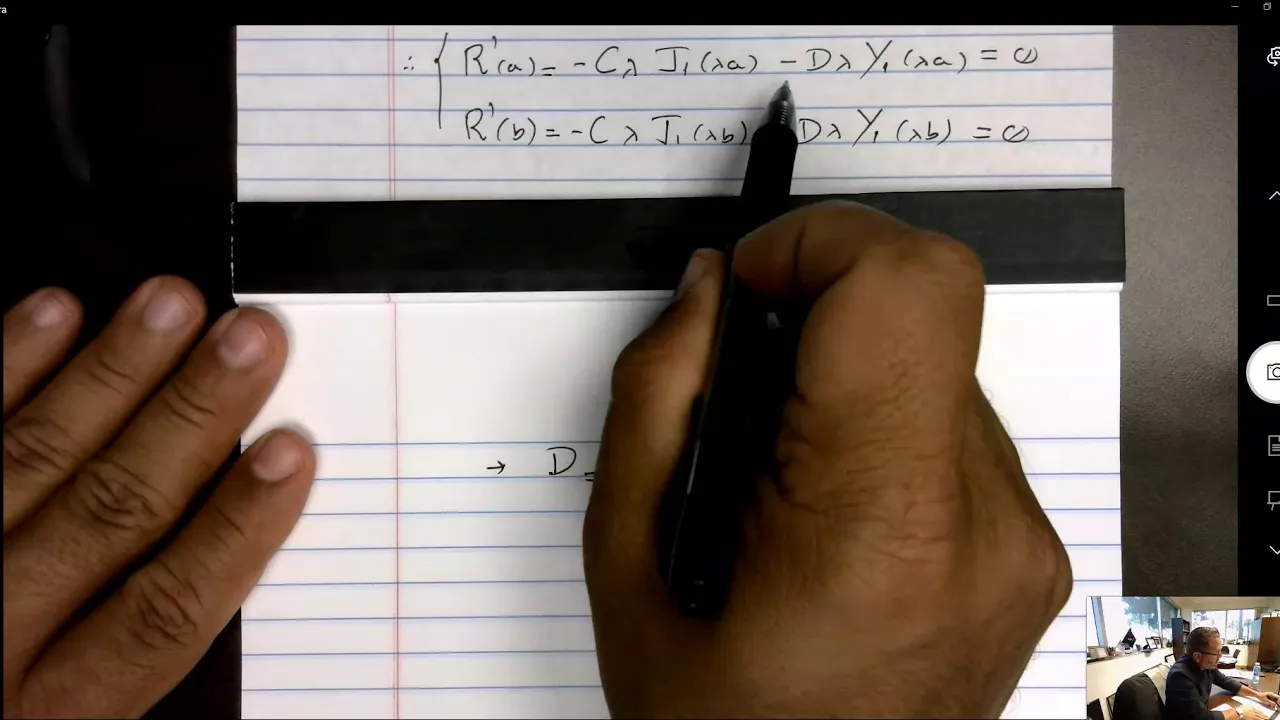 ra
∴ { R'(a) = -Cλ J₁(λa) - Dλ Y₁(λa) = 0
R'(b) = -Cλ J₁(λb) Dλ Y₁(λb) = 0
→ D =